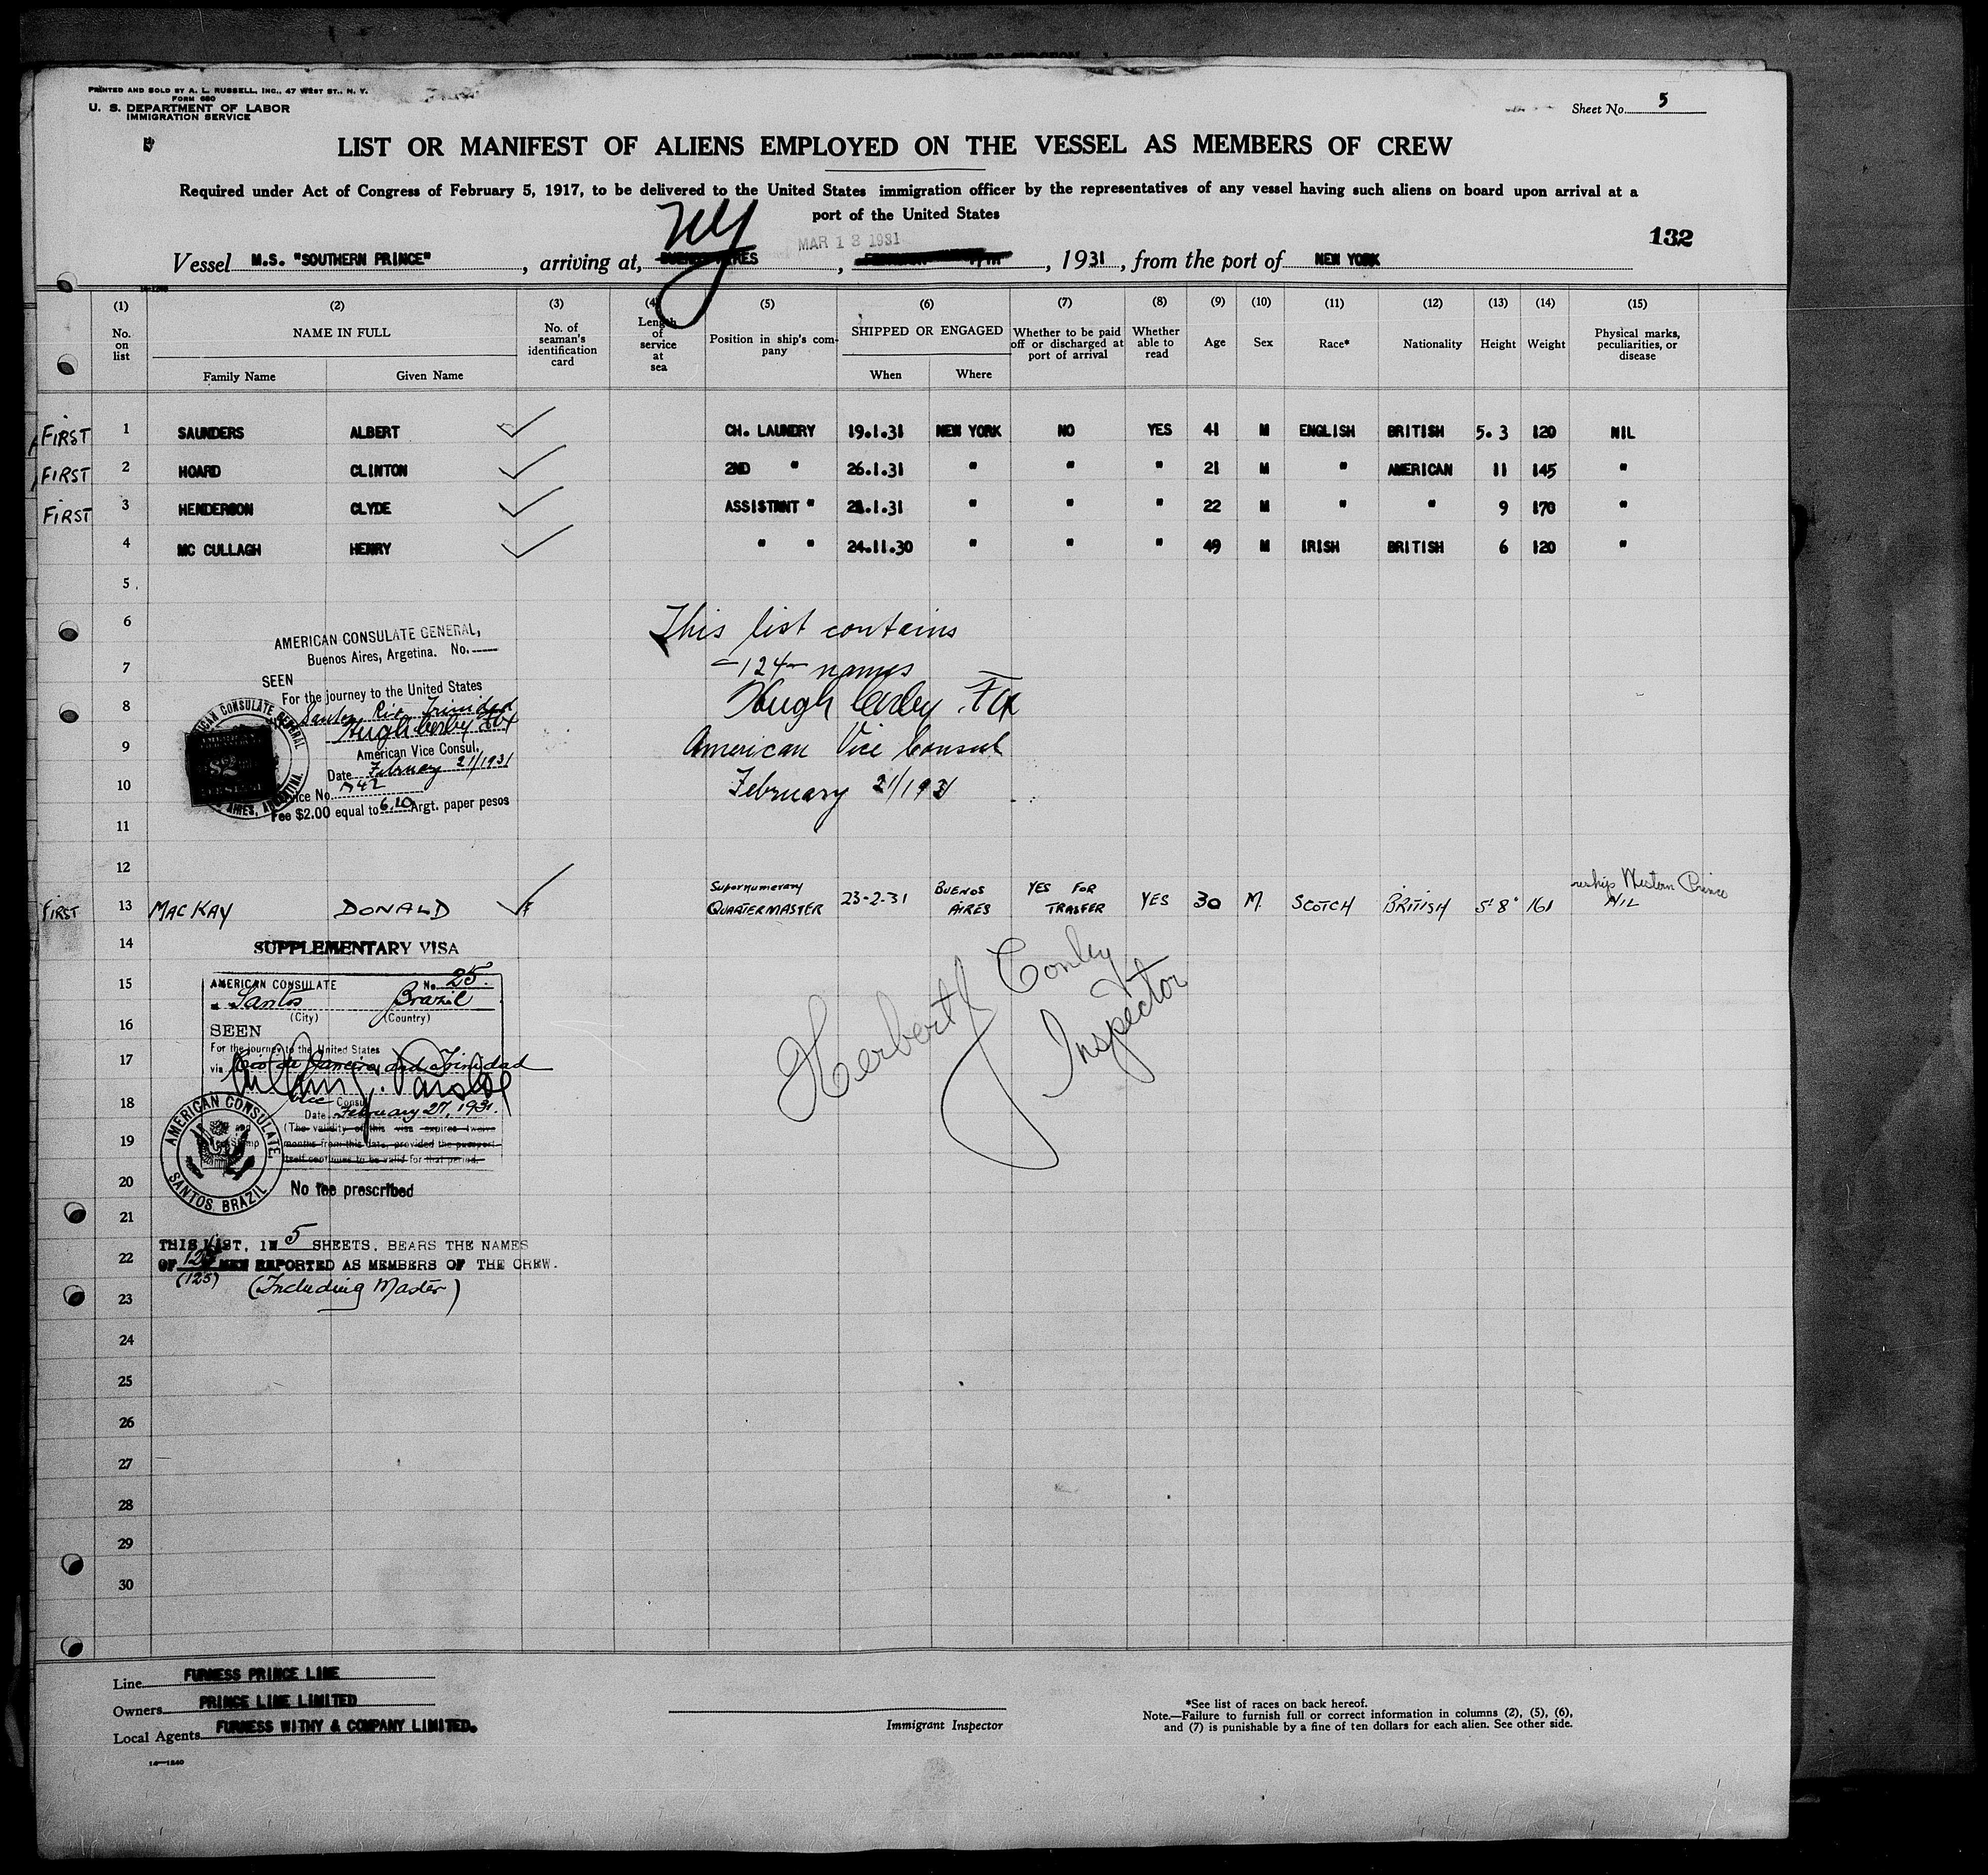 PRINTED AND SOLD BY A. L. RUSSELL, INC., 47 WEST ST., N. Y.
FORM 680
U. S. DEPARTMENT OF LABOR
IMMIGRATION SERVICE
Sheet No. 5
LIST OR MANIFEST OF ALIENS EMPLOYED ON THE VESSEL AS MEMBERS OF CREW
Required under Act of Congress of February 5, 1917, to be delivered to the United States immigration officer by the representatives of any vessel having such aliens on board upon arrival at a
port of the United States
132
NY
MAR 13 1931
Vessel M.S. "SOUTHERN PRINCE", arriving at, BUENOS AIRES, FEBRUARY, 1931, from the port of NEW YORK
(1) (2) (3) (4) (5) (6) (7) (8) (9) (10) (11) (12) (13) (14) (15)
No. on list
NAME IN FULL
Family Name Given Name
No. of seaman's identification card
Length of service at sea
Position in ship's company
SHIPPED OR ENGAGED
When Where
Whether to be paid off or discharged at port of arrival
Whether able to read
Age
Sex
Race*
Nationality
Height
Weight
Physical marks, peculiarities, or disease
FIRST 1 SAUNDERS ALBERT CH. LAUNDRY 19.1.31 NEW YORK NO YES 41 M ENGLISH BRITISH 5. 3 120 NIL
FIRST 2 HOARD CLINTON 2ND " 26.1.31 " " " 21 M " AMERICAN 11 145 "
FIRST 3 HENDERSON CLYDE ASSISTANT " .1.31 " " " 22 M " " 9 170 "
4 MC CULLAGH HENRY " " 24.11.30 " " " 49 M IRISH BRITISH 6 120 "
5
6
7
8
9
10
11
12
AMERICAN CONSULATE GENERAL,
Buenos Aires, Argetina. No.
SEEN
For the journey to the United States
Santos Rio Trinidad
Hugh Corby Fox
American Vice Consul.
Date February 21/1931
Service No. 742
Fee $2.00 equal to 6.10 Argt. paper pesos
This list contains
-124- names
Hugh Corby Fox
American Vice Consul
February 21/1931
FIRST 13 MACKAY DONALD Supernumerary QUARTERMASTER 23-2-31 BUENOS AIRES YES FOR TRASFER YES 30 M. SCOTCH BRITISH 5'8" 161 Western Prince NIL
14
15
16
17
18
19
20
21
22
23
24
25
26
27
28
29
30
SUPPLEMENTARY VISA
AMERICAN CONSULATE No. 25.
Santos Brazil
(City) (Country)
SEEN
For the journey to the United States
via Rio de Janeiro and Trinidad
Vice Consul
Date February 27, 1931.
(The validity of this visa expires twelve
months from this date, provided the passport
itself continues to be valid for that period.
AMERICAN CONSULATE
SANTOS, BRAZIL
No fee prescribed
Herbert J Conley
Inspector
THIS LIST, IN 5 SHEETS, BEARS THE NAMES
OF MEN REPORTED AS MEMBERS OF THE CREW.
(125) (Including Master)
Line FURNESS PRINCE LINE
Owners PRINCE LINE LIMITED
Local Agents FURNESS WITHY & COMPANY LIMITED.
Immigrant Inspector
*See list of races on back hereof.
Note.—Failure to furnish full or correct information in columns (2), (5), (6),
and (7) is punishable by a fine of ten dollars for each alien. See other side.
14—1240